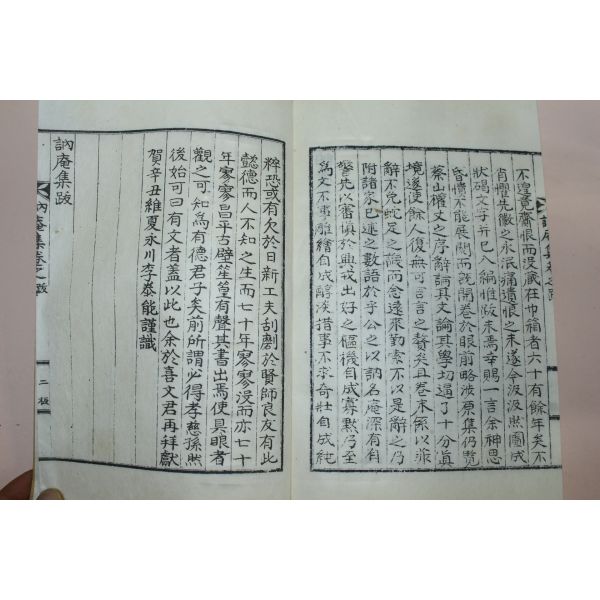 不遑竟齋恨而湮藏在巾箱者六十有餘年矣不
肖懼先徽之永泯痛遺恨之未遂今汲汲然圖成
狀碣文子并已入編惟跋未焉幸賜一言余神思
昏憒不能展閱而旣開卷於眼前略涉原集仍覽
蔡山權丈之序辭詞其文論其學切逼了十分眞
境遂使餘人復無可言言之贅矣且卷末係以非
辭不免蛇足之譏而念遠來勤索不以是辭之乃
附諸家已述之數語於乎公之以訥名庵深有自
警先以審愼於興戎出好之樞機自成寡默乃至
爲文不事雕繪自成醇淡措事不求奇壯自成純
粹恐或有欠於日新工夫刮劘於賢師良友有此
懿德而人不知之生而七十年寥寥沒而亦七十
年寥寥昌乎古壁笙篁有聲其書出焉使具眼者
觀之可知爲有德君子矣前所謂必得孝慈孫然
後始可曰有文者蓋以此也余於喜文君再拜獻
賀辛丑維夏永川李泰能謹識
訥庵集跋
訥庵集卷之跋
二 板